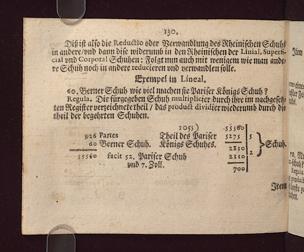 130.
Diß ist also die Reductio oder Verwandlung des Rheinischen Schuhs
in andere/ und dann dise widerumb in den Rheinischen der Linial, Superfi-
cial und Corporal Schuhen: Folgt nun auch mit wenigem wie man ande-
re Schuh noch in andere reducieren und verwandlen solle.
Exempel in Lineal.
60. Berner Schuh wie viel machen sie Pariser Königs Schuh?
Regula. Die fürgegebene Schuh multiplicier durch ihre im nachgesetz-
ten Register verzeichnete theil/ das product dividier widerumb durch die
theil der begehrten Schuhen.
926 Partes
60 Berner Schuh.
55560
facit 52. Pariser Schuh
und 7. Zoll.
1055)
Theil des Pariser
Königs Schuhes.
55560
5275
2810
2110
700
5
2
Schuh.
Item